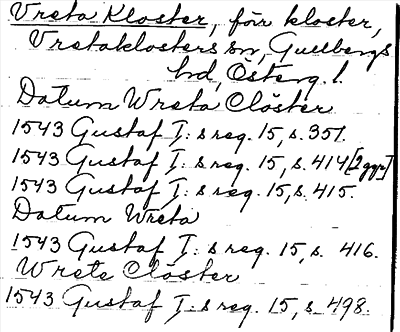 Vreta Kloster, förr kloster,
Vretaklosters sn, Gullbergs
hd, Österg. l.
Datum Wreta Clöster
1543 Gustaf I:s reg. 15, s. 351.
1543 Gustaf I:s reg. 15, s. 414 [2 ggr]
1543 Gustaf I:s reg. 15, s. 415.
Datum Wreta
1543 Gustaf I:s reg. 15, s. 416.
Wrete Clöster
1543 Gustaf I:s reg. 15, s. 498.